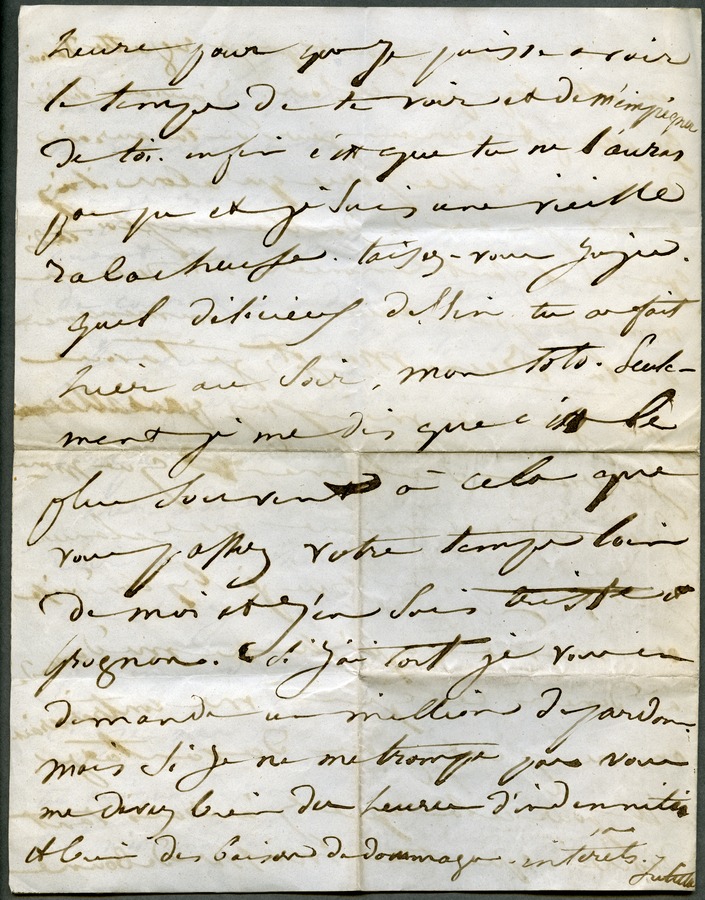 heure pour que je puisse avoir
le temps de te voir et de m'empoigner
de toi. enfin c'est que tu ne l'auras
pas pu et je suis une vieille
rabacheuse. taisez-vous Juju.
quel délicieux dessin tu as fait
hier au soir, mon Toto. Seule-
ment je me dis que c'est le
plus souvent à cela que
vous passez votre temps loin
de moi et j'en suis triste et
grognon. Si j'ai tort je vous en
demande un million de pardons
mais si je ne me trompe pas vous
me devez bien des heures d'indemnités
et bien des baisers de dommages-intérêts.
Juliette